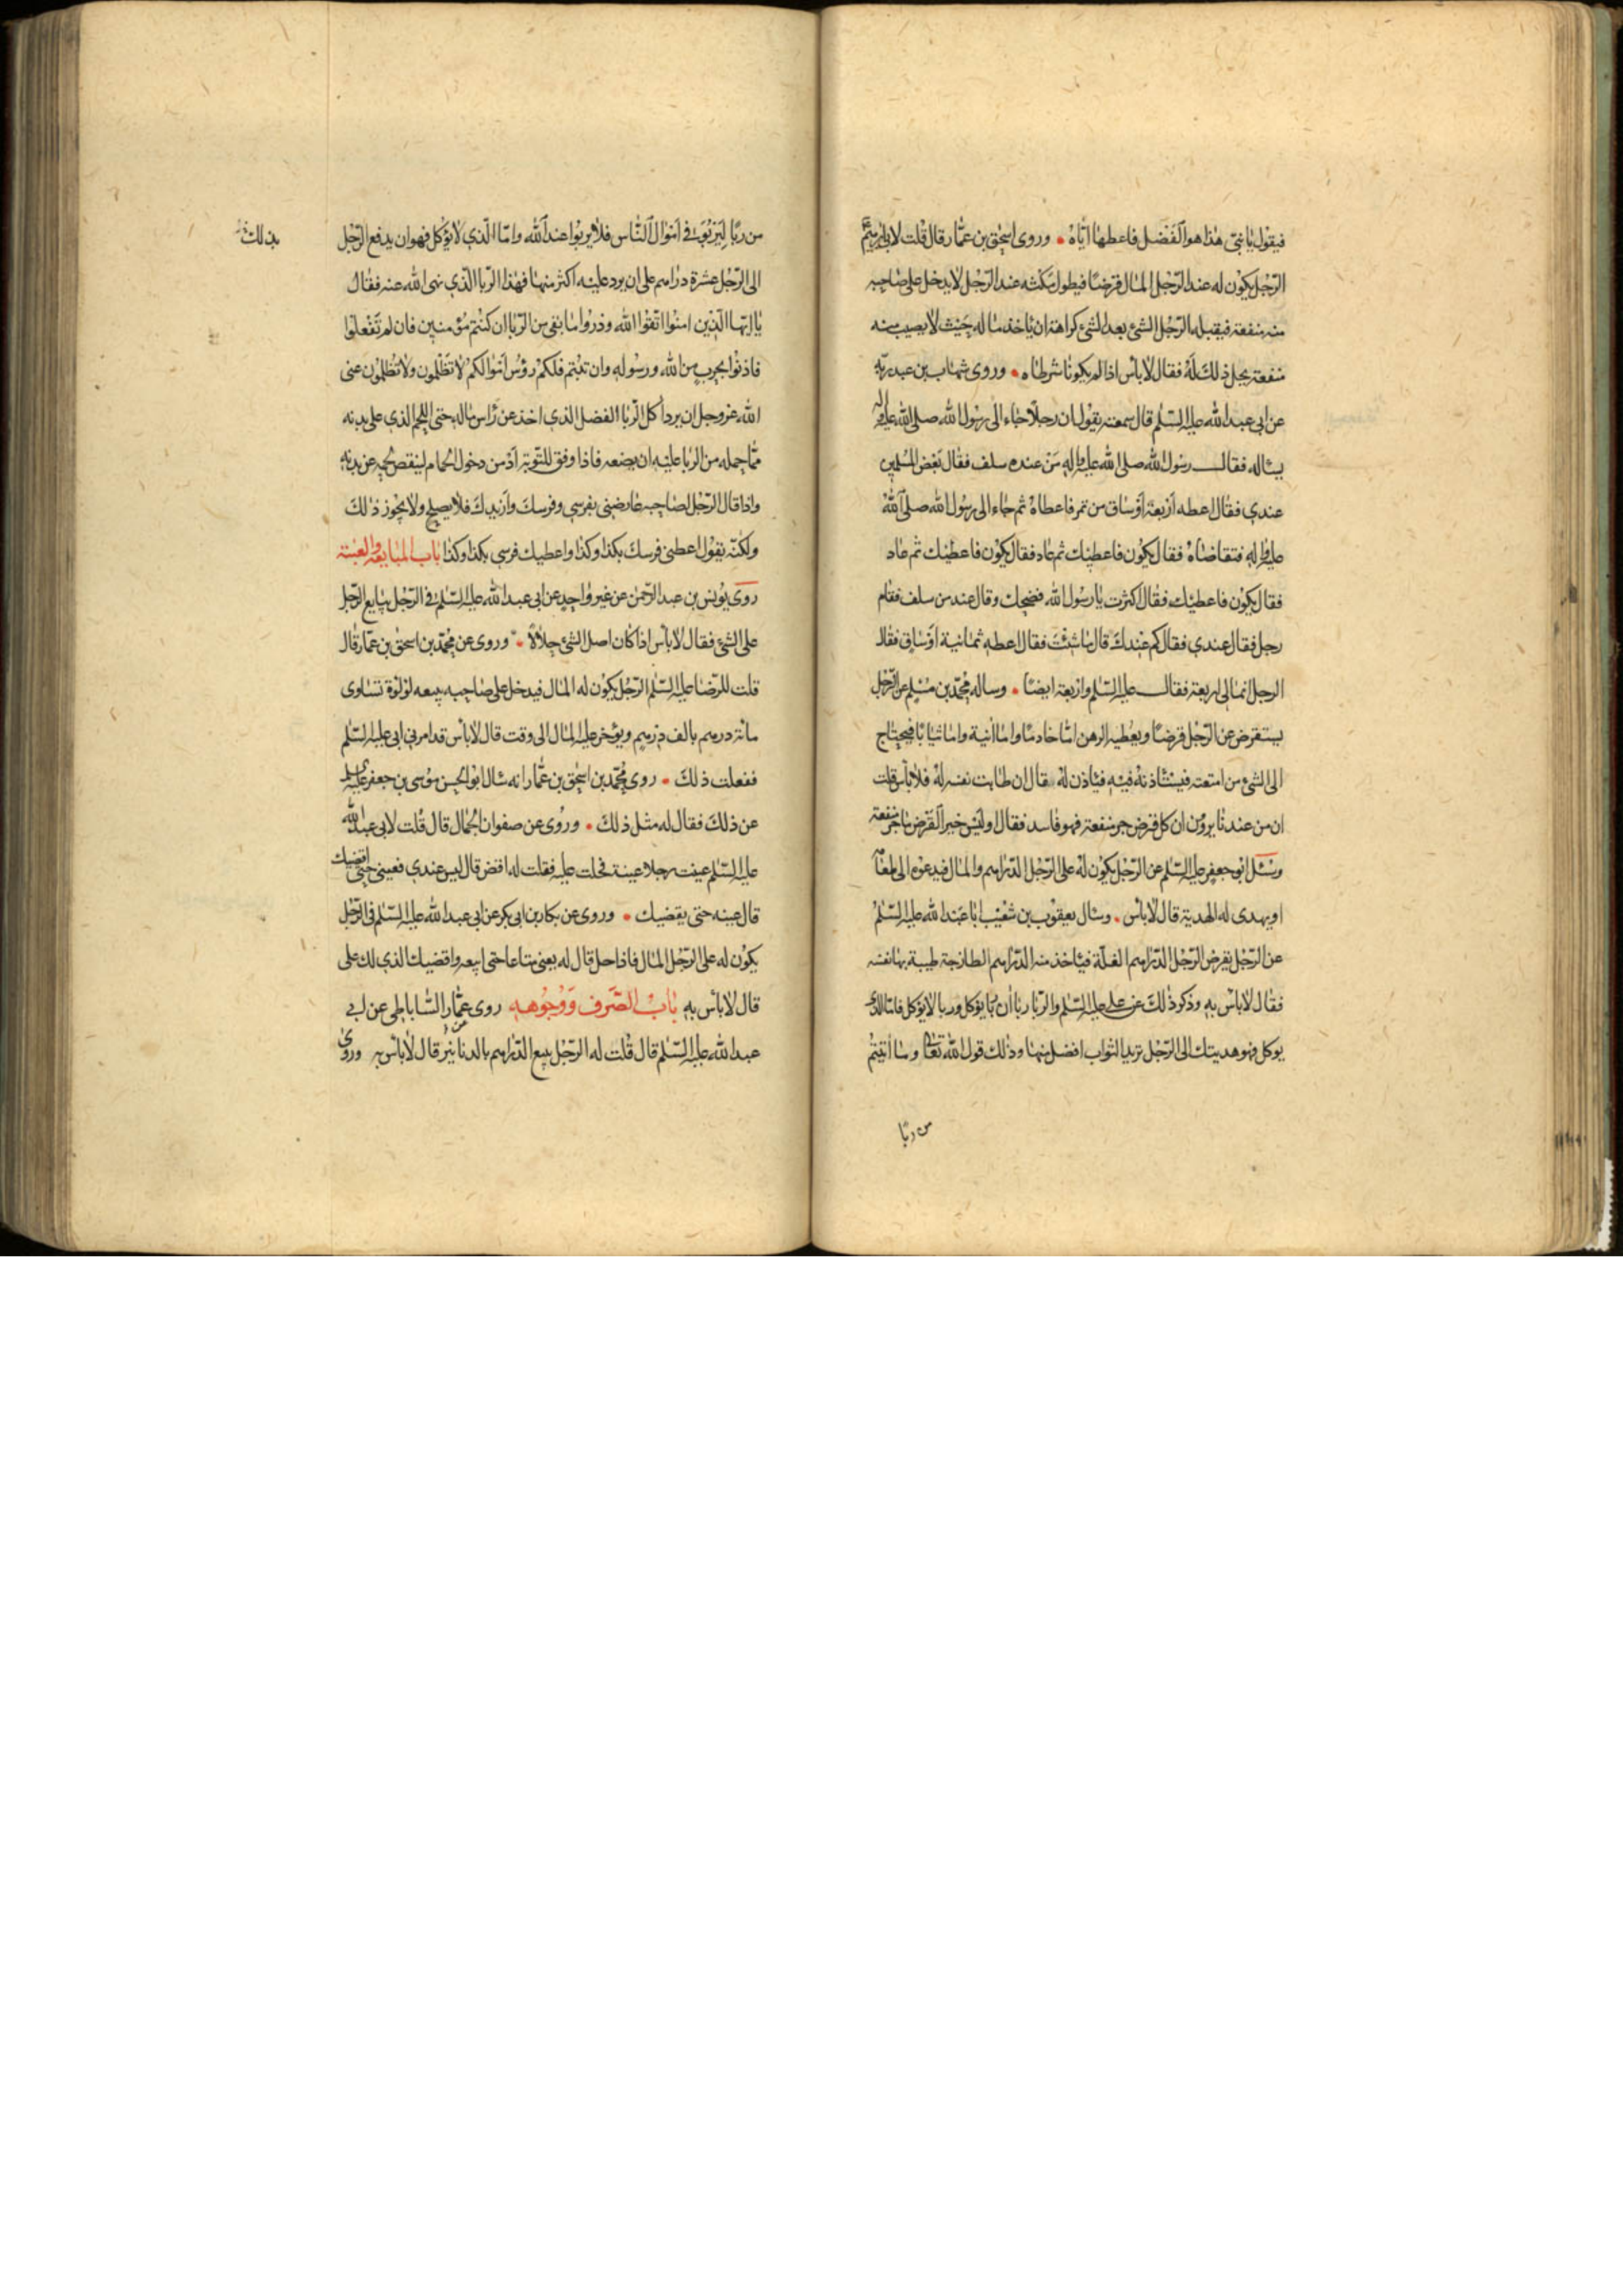 فيقول يا بنى هذا هو الفضل فاعطها اياه وروى اسحق بن عمار قال قلت لابى ابرهيم
الرجل يكون له عند الرجل المال قرضا فيطول مكثه عند الرجل لا يدخل على صاحبه
منه منفعة فيقبله الرجل الشئ بعد الشئ كراهة ان ياخذ ماله حيث لا يصيب منه
منفعة يحل ذلك له فقال لا باس اذا لم يكونا شرطاه وروى شهاب بن عبد ربه
عن ابى عبد الله عليه السلم قال سمعته يقول ان رجلا جاء الى رسول الله صلى الله عليه واله
يساله فقال رسول الله صلى الله عليه واله من عنده سلف فقال بعض المسلمين
عندي فقال اعطه اربعة اوساق من تمر فاعطاه ثم جاء الى رسول الله صلى الله
عليه واله فتقاضاه فقال يكون فاعطيك ثم عاد فقال يكون فاعطيك ثم عاد
فقال يكون فاعطيك فقال اكثرت يا رسول الله فضحك وقال عند من سلف فقام
رجل فقال عندي فقال كم عندك قال ما شئت فقال اعطه ثمانية اوساق فقال
الرجل انما لى اربعة فقال عليه السلم واربعة ايضا وساله محمد بن مسلم عن الرجل
يستقرض من الرجل قرضا ويعطيه الرهن اما خادما واما انية واما ثيابا فيحتاج
الى الشئ من امتعته فيستاذنه فيه فياذن له قال ان طابت نفسه له فلا باس قلت
ان من عندنا يروون ان كل قرض جر منفعة فهو فاسد فقال اوليس خير القرض ما جر منفعة
وسئل ابو جعفر عليه السلم عن الرجل يكون له على الرجل الدراهم والمال فيدعوه الى طعامه
او يهدى له الهدية قال لا باس وسال يعقوب بن شعيب ابا عبد الله عليه السلم
عن الرجل يقرض الرجل الدراهم الغلة فياخذ منه الدراهم الطازجة طيبة بها نفسه
فقال لا باس به وذكر ذلك عن على عليه السلم والربا ربا ان ربا يؤكل وربا لا يؤكل فاما الذي
يوكل فهو هديتك الى الرجل تريد الثواب افضل منها وذلك قول الله تعالى وما اتيتم
من ربا
من ربا ليربو فى اموال الناس فلا يربوا عند الله واما الذي لا يؤكل فهو ان يدفع الرجل
الى الرجل عشرة دراهم على ان يرد عليه اكثر منها فهذا الربا الذي نهى الله عنه فقال
يا ايها الذين امنوا اتقوا الله وذروا ما بقى من الربا ان كنتم مؤمنين فان لم تفعلوا
فاذنوا بحرب من الله ورسوله وان تبتم فلكم رؤس اموالكم لا تظلمون ولا تظلمون عنى
الله عز وجل ان يرد اكل الربا الفضل الذي اخذ عن راس ماله حتى اللحم الذي على بدنه
مما حمله من الربا عليه ان يضعه فاذا وفق للتوبة ادمن دخول الحمام لينقص لحمه عن بدنه
واذا قال الرجل لصاحبه عارضنى بفرسي وفرسك وازيدك فلا يصلح ولا يجوز ذلك
ولكنه يقول اعطنى فرسك بكذا وكذا واعطيك فرسي بكذا وكذا باب المبايعة والعينة
روى يونس بن عبد الرحمن عن غير واحد عن ابى عبد الله عليه السلم فى الرجل يبايع الرجل
على الشئ فقال لا باس اذا كان اصل الشئ حلالا وروى عن محمد بن اسحق بن عمار قال
قلت للرضا عليه السلم الرجل يكون له المال فيدخل على صاحبه يبيعه لؤلؤة تساوى
مائة درهم بالف درهم ويؤخر عليه المال الى وقت قال لا باس قد امرنى ابى عليه السلم
ففعلت ذلك روى محمد بن اسحق بن عمار انه سال ابو الحسن موسى بن جعفر عليه السلم
عن ذلك فقال له مثل ذلك وروى عن صفوان الجمال قال قلت لابى عبد الله
عليه السلم عينت رجلا عينة فحلت عليه فقلت له اقض قال ليس عندي فعينى حتى اقضيك
قال عينه حتى يقضيك وروى عن بكار بن ابى بكر عن ابى عبد الله عليه السلم فى الرجل
يكون له على الرجل المال فاذا حل قال له بعنى متاعا حتى ابيعه واقضيك الذي لك على
قال لا باس به باب الصرف ووجوهه روى عمار الساباطى عن ابى
عبد الله عليه السلم قال قلت له الرجل يبيع الدراهم بالدنانير قال لا باس به وروى